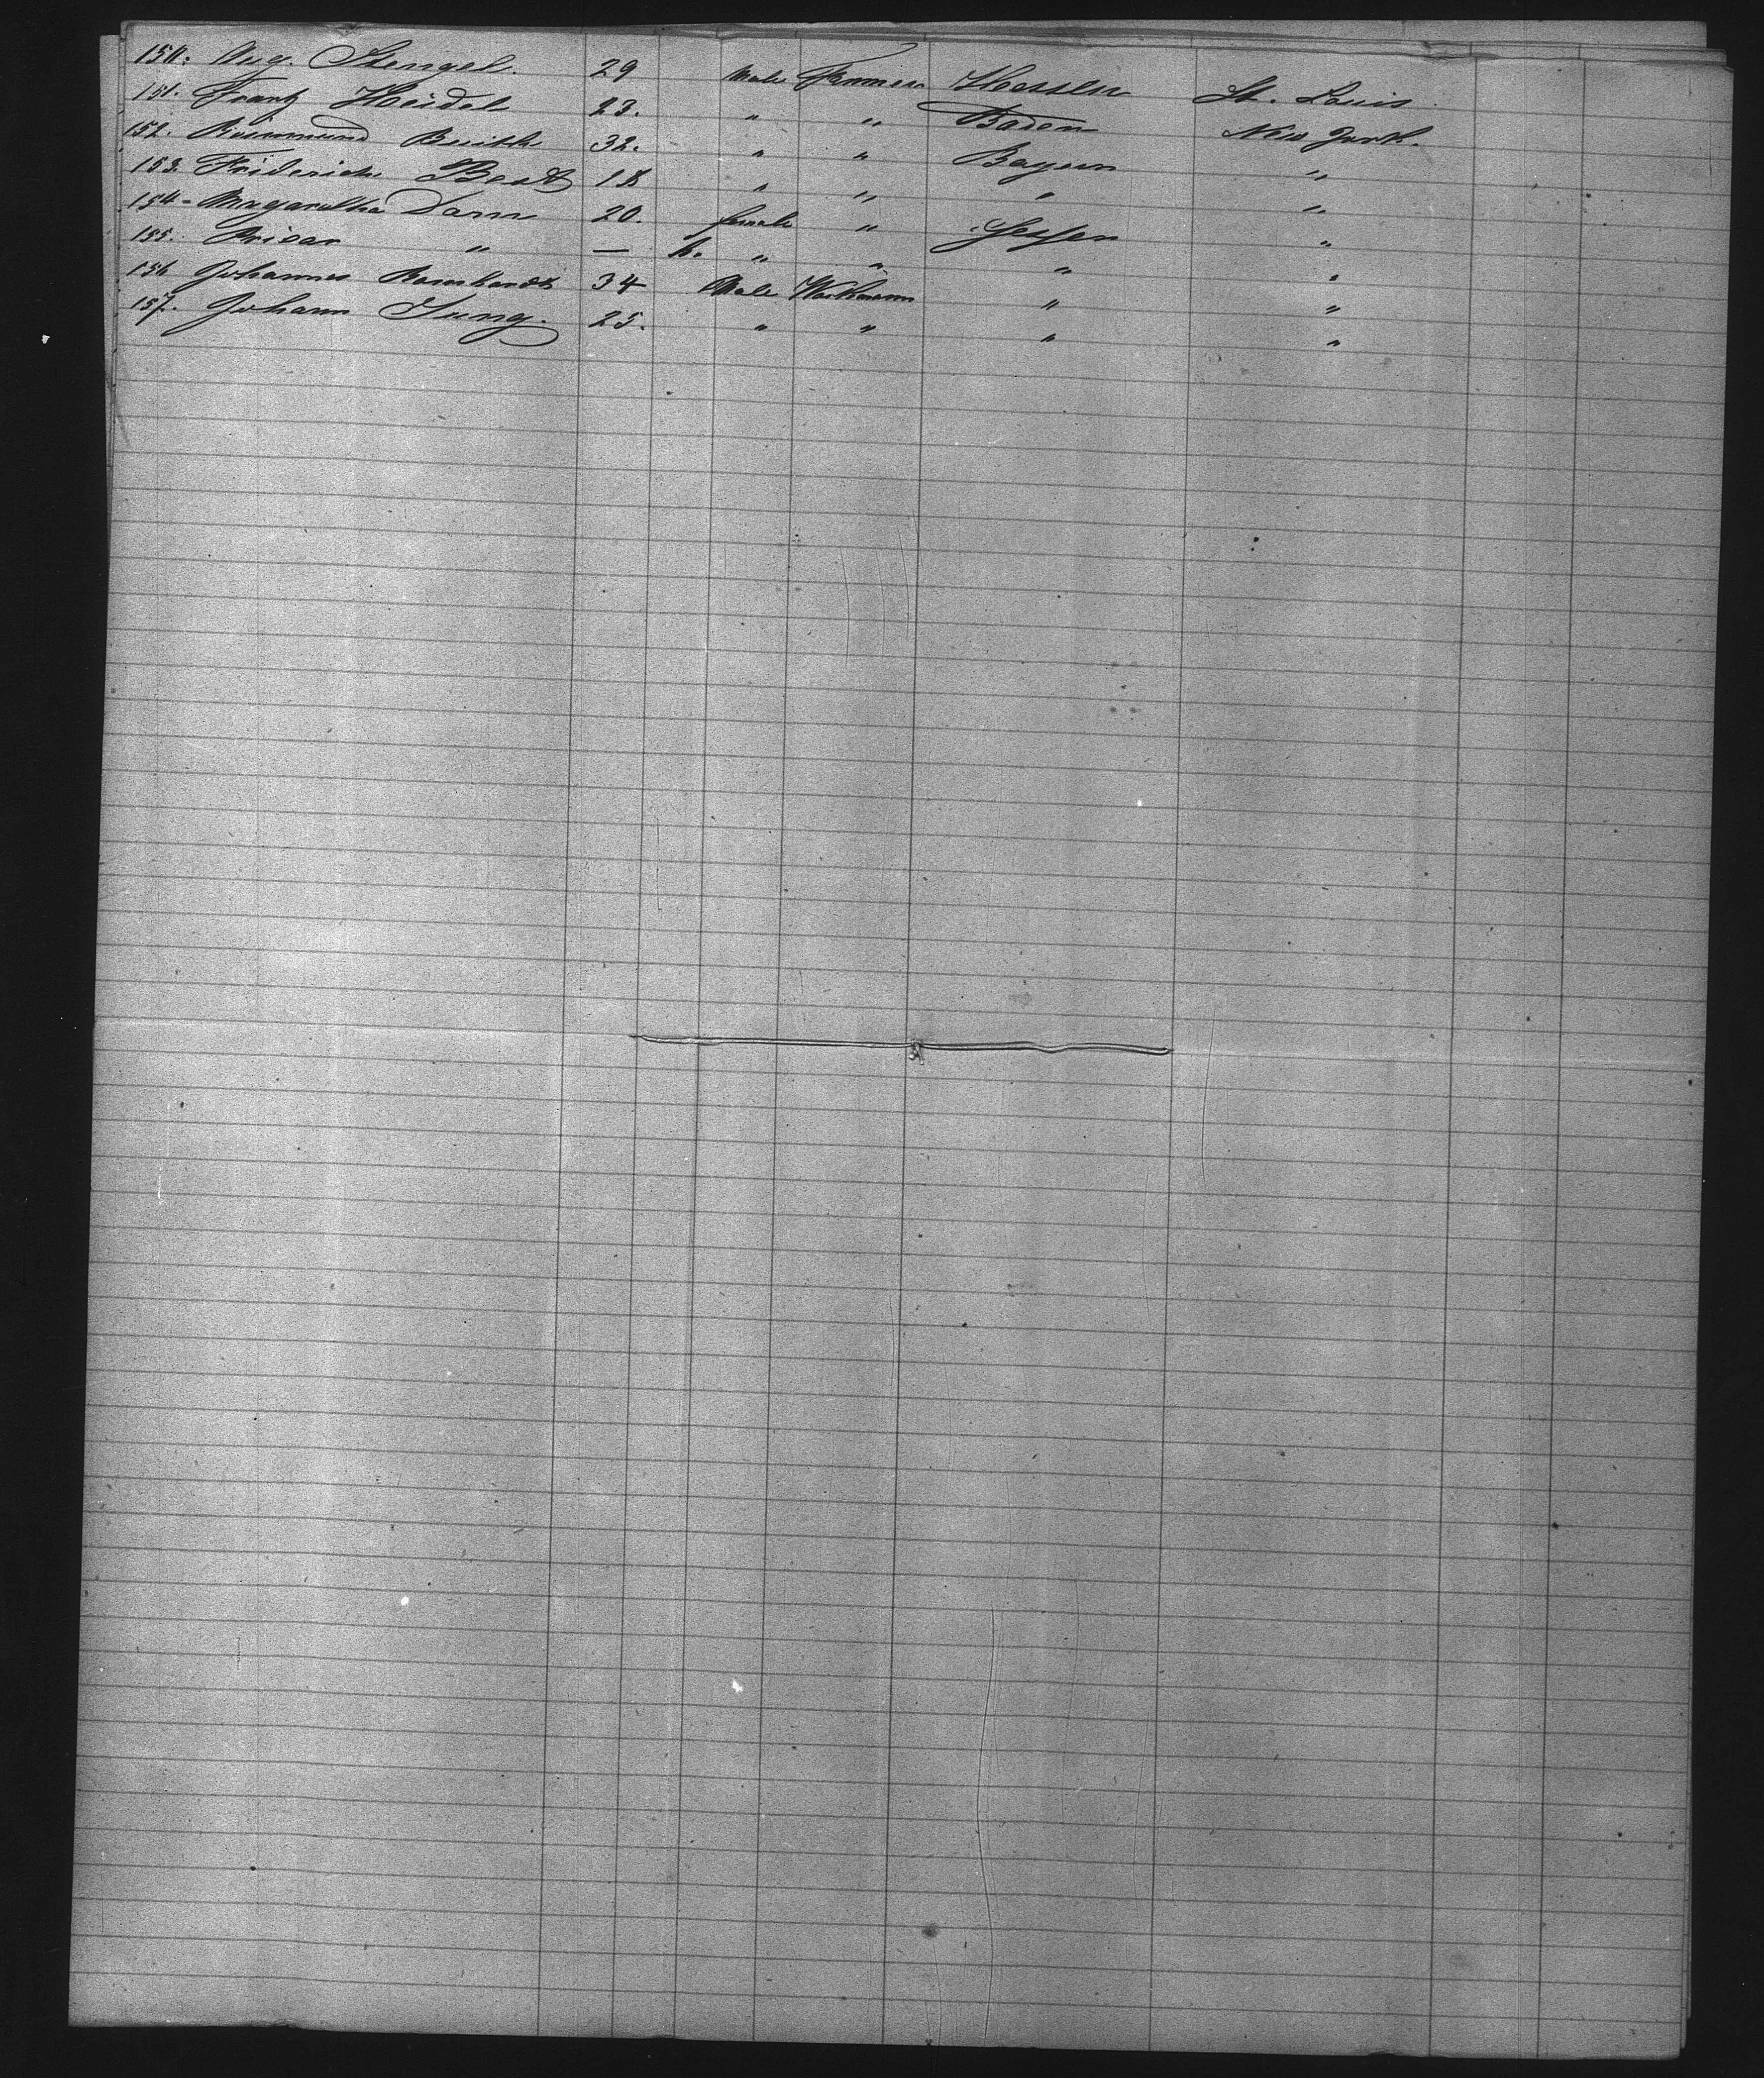 150. Aug. Stengel. 29 Male Farmer Hessen St. Louis
151. Frantz Heidel 23. " " Baden New York.
152. 32. " " Bayern "
153. Friderich 18 " " " "
154. Margaretha Dorn 20. female " Hessen "
155. " — " " " "
156 Johannes 34 Male Workmann " "
157. Johann Jung. 25. " " " "